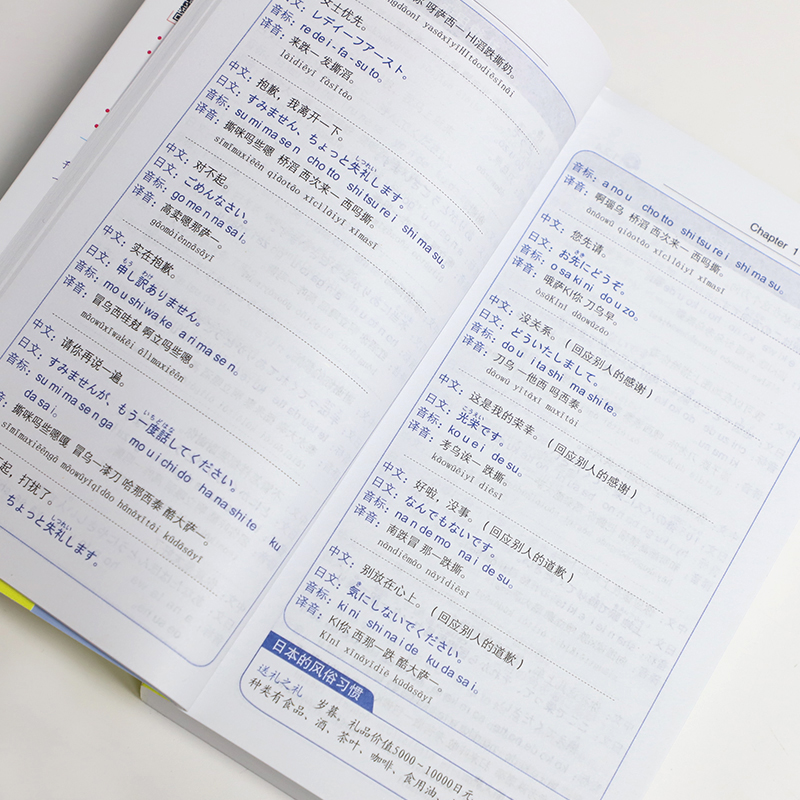 呀萨西一HI滔跌撕奶。
yasaxiyiHItāodiēsīnǎi
女士优先。
日文：レディーファースト。
音标：re de i- fa- su to。
译音：来跌一发撕滔。
láidiēyī fāsītāo
中文：抱歉，我离开一下。
日文：すみません、ちょっと失礼します。
しつれい
音标：su mi ma se n cho tto shi tsu re i shi ma su。
译音：撕咪吗些嗯 桥滔 西次来一 西吗撕。
sīmīmaxiēēn qiáotāo xīcìláiyī xīmasī
中文：对不起。
日文：ごめんなさい。
音标：go me n na sa i。
译音：高卖嗯那萨一。
gāomàiēnnàsàyī
中文：实在抱歉。
日文：申し訳ありません。
もう わけ
音标：mo u shi wa ke a ri ma se n。
译音：冒乌西哇尅 啊立吗些嗯。
màowūxīwakēi ālìmaxiēēn
中文：请你再说一遍。
日文：すみませんが、もう一度話してください。
いちど はな
音标：su mi ma se n ga mo u i chi do ha na shi te ku
da sa i。
译音：撕咪吗些嗯嘎 冒乌一漆刀 哈那西泰 酷大萨一。
sīmīmaxiēēngā màowūyīqīdāo hānàxītài kùdàsàyī
起，打扰了。
ちょっと失礼します。
しつれい
Chapter 1
音标：a no u cho tto shi tsu re i shi ma su。
译音：啊瑙乌 桥滔 西次来一 西吗撕。
ānǎowū qiáotāo xīcìláiyī xīmasī
中文：您先请。
日文：お先にどうぞ。
さき
音标：o sa ki ni do u zo。
译音：哦萨KI你 刀乌早。
òsàKInǐ dāowūzǎo
中文：没关系。（回应别人的感谢）
日文：どういたしまして。
音标：do u i ta shi ma shi te。
译音：刀乌 一他西 吗西泰。
dāowū yītāxī maxītài
中文：这是我的荣幸。（回应别人的感谢）
日文：光栄です。
こうえい
音标：ko u e i de su。
译音：考乌诶一 跌撕。
kǎowūēiyī diēsī
中文：好啦，没事。（回应别人的道歉）
日文：なんでもないです。
音标：na n de mo na i de su。
译音：南跌冒 那一跌撕。
nándiēmào nàyīdiēsī
中文：别放在心上。（回应别人的道歉）
日文：気にしないでください。
き
音标：ki ni shi na i de ku da sa i。
译音：KI你 西那一跌 酷大萨一。
KInǐ xīnàyīdiē kùdàsàyī
日本的风俗习惯
送礼之礼 岁暮，礼品价值5000－10000日元，
种类有食品、酒、茶叶、咖啡、食用油、